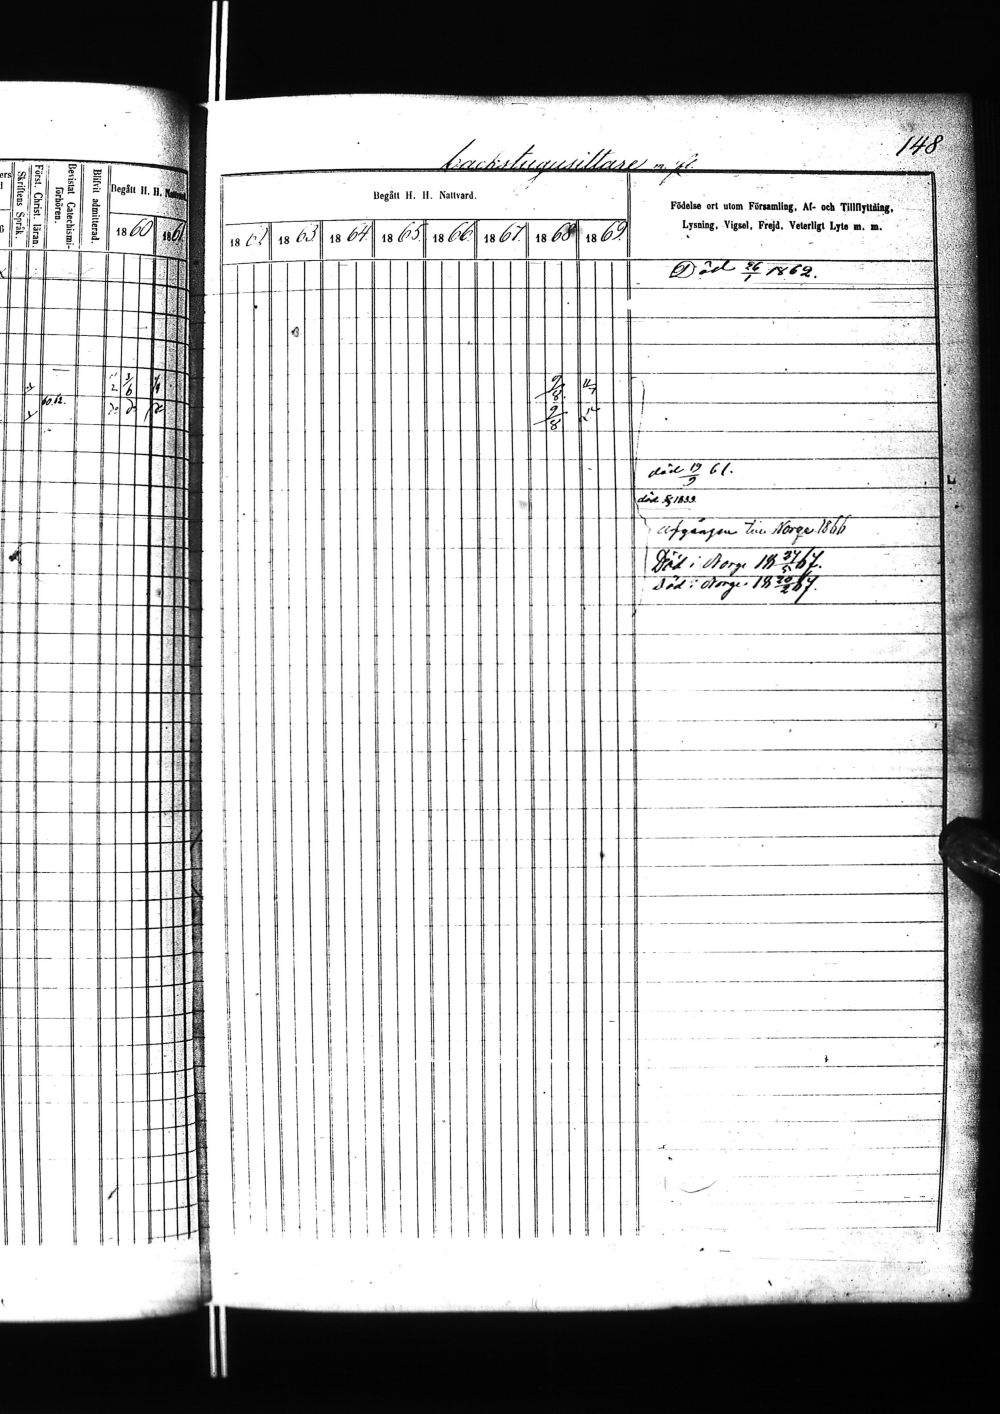 148
backstugusittare m. fl.
Skriftens Språk.
Först. Christ. läran.
Bevistat Catechismi-
förhören.
Blifvit admitterad.
Begått H. H. Nattvard.
1860 1861
Begått H. H. Nattvard.
1862 1863 1864 1865 1866 1867 1868 1869
Födelse ort utom Församling, Af- och Tillflyttning,
Lysning, Vigsel, Frejd, Veterligt Lyte m. m.
Död 26/1 1862.
9/8
60.62.
9/8
död 19/9 61.
död 1833
Afgången till Norge 1866
Död i Norge 18 27/5 67.
Död i Norge 18 20/2 67.